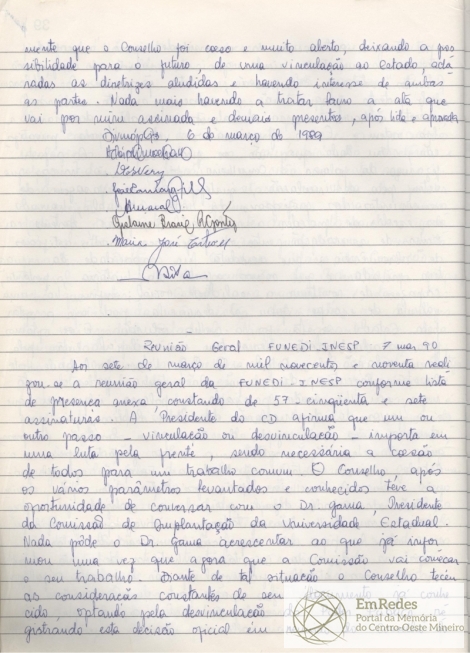 mente que o Conselho foi coeso e muito aberto, deixando a pos
sibilidade para o futuro, de uma vinculação ao Estado, acla
radas as diretrizes aludidas e havendo interesse de ambas
as partes. Nada mais havendo a tratar lavro a ata que
vai por mim assinada e demais presentes, após lida e aprovada
Divinópolis, 6 de março de 1989
Maria José
Silva
Reunião Geral FUNEDI-INESP 7 mar 90
Aos sete de março de mil novecentos e noventa reali
zou-se a reunião geral da FUNEDI-INESP conforme lista
de presença anexa, constando de 57 - cinqüenta e sete
assinaturas. A Presidente do CD afirma que um ou
outro passo - vinculação ou desvinculação - importa em
uma luta pela frente, sendo necessária a coesão
de todos para um trabalho comum. O Conselho, após
os vários parâmetros levantados e conhecidos teve a
oportunidade de conversar com o Dr. Gama, Presidente
da Comissão de Implantação da Universidade Estadual.
Nada pôde o Dr. Gama acrescentar ao que já infor
mou uma vez que agora que a Comissão vai começar
o seu trabalho. Diante de tal situação o Conselho teceu
as considerações constantes de seu já conhe
cido, optando pela desvinculação
gistrando esta decisão oficial em
EmRedes
Portal da Memória
do Centro-Oeste Mineiro